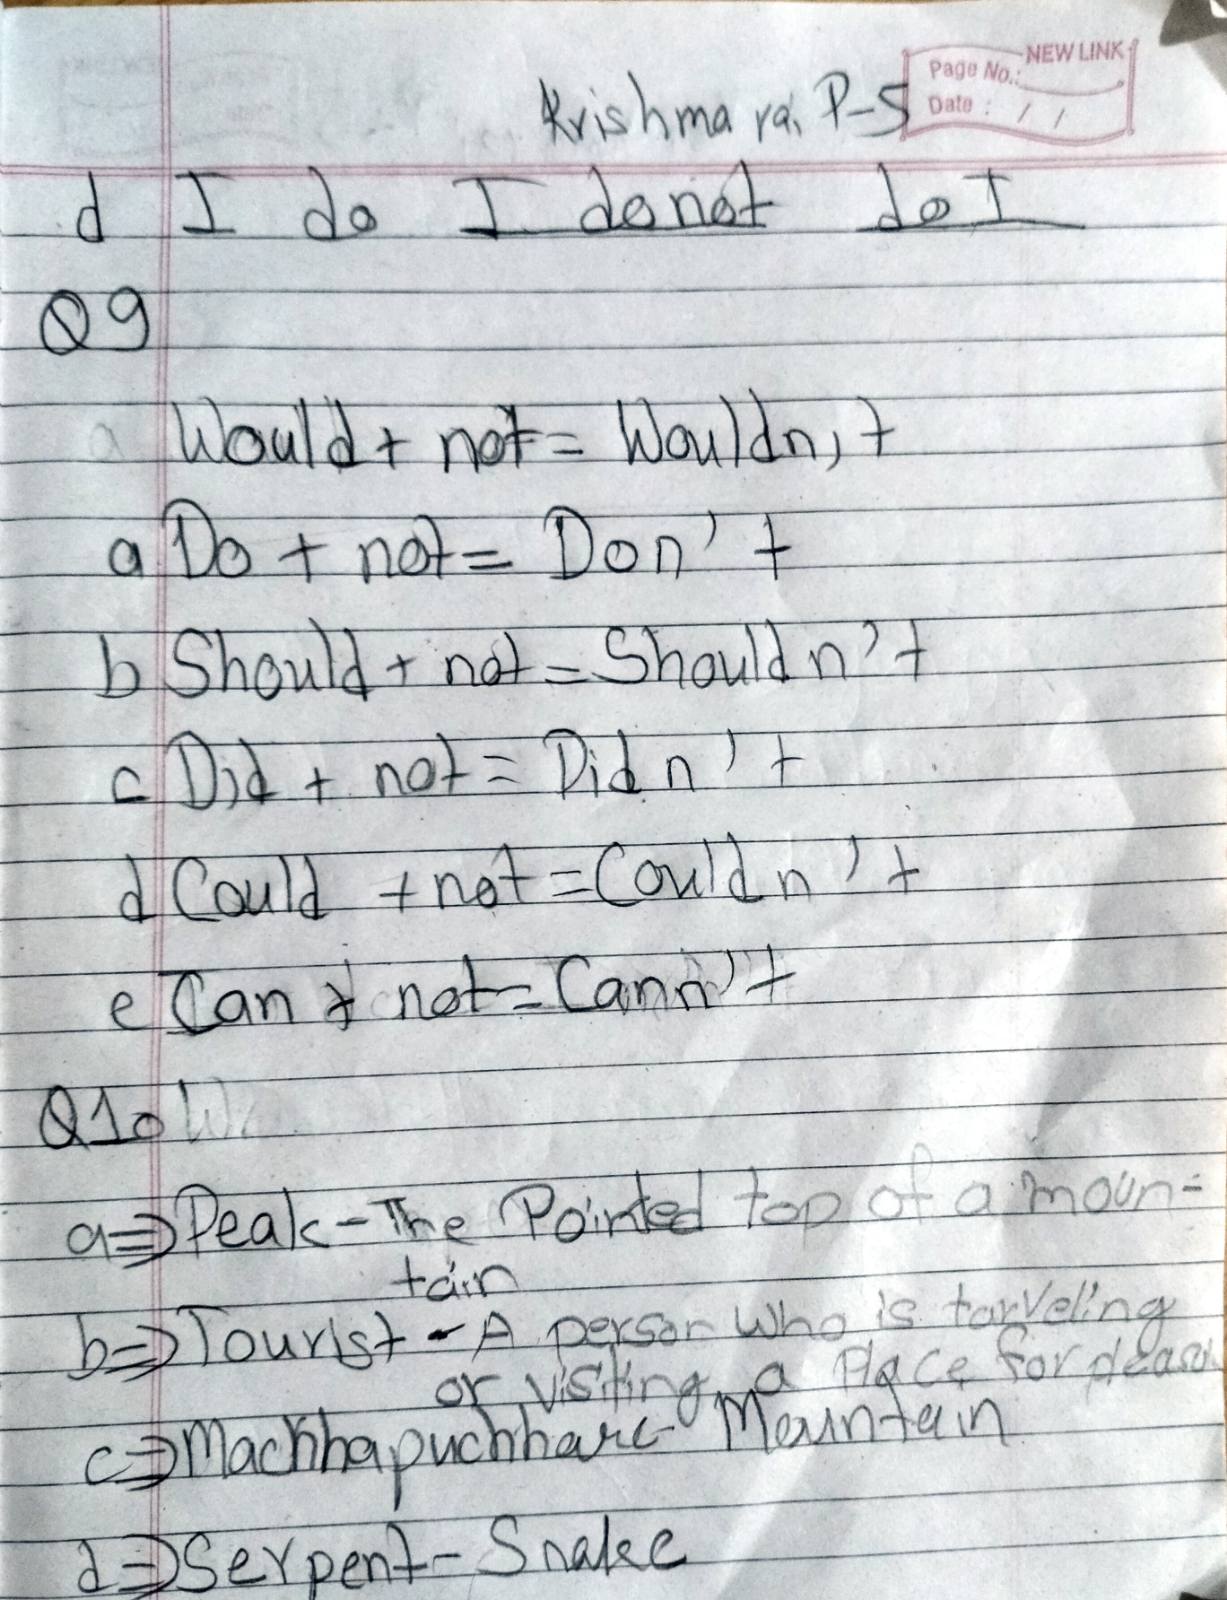 NEW LINK
Page No.:
Date : / /
Krishma rai P-5
d I do I donot do I
Q9
a Would + not = Wouldn,t
a Do + not = Don't
b Should + not = Shouldn't
c Did + not = Didn't
d Could + not = Couldn't
e Can + not = Cann't
Q10 W
a⇒ Peak - The Pointed top of a moun-
tain
b⇒ Tourist - A person who is tarveling
or visiting a Place for
c⇒ Machhapuchhare Mountain
d⇒ Serpent - Snake